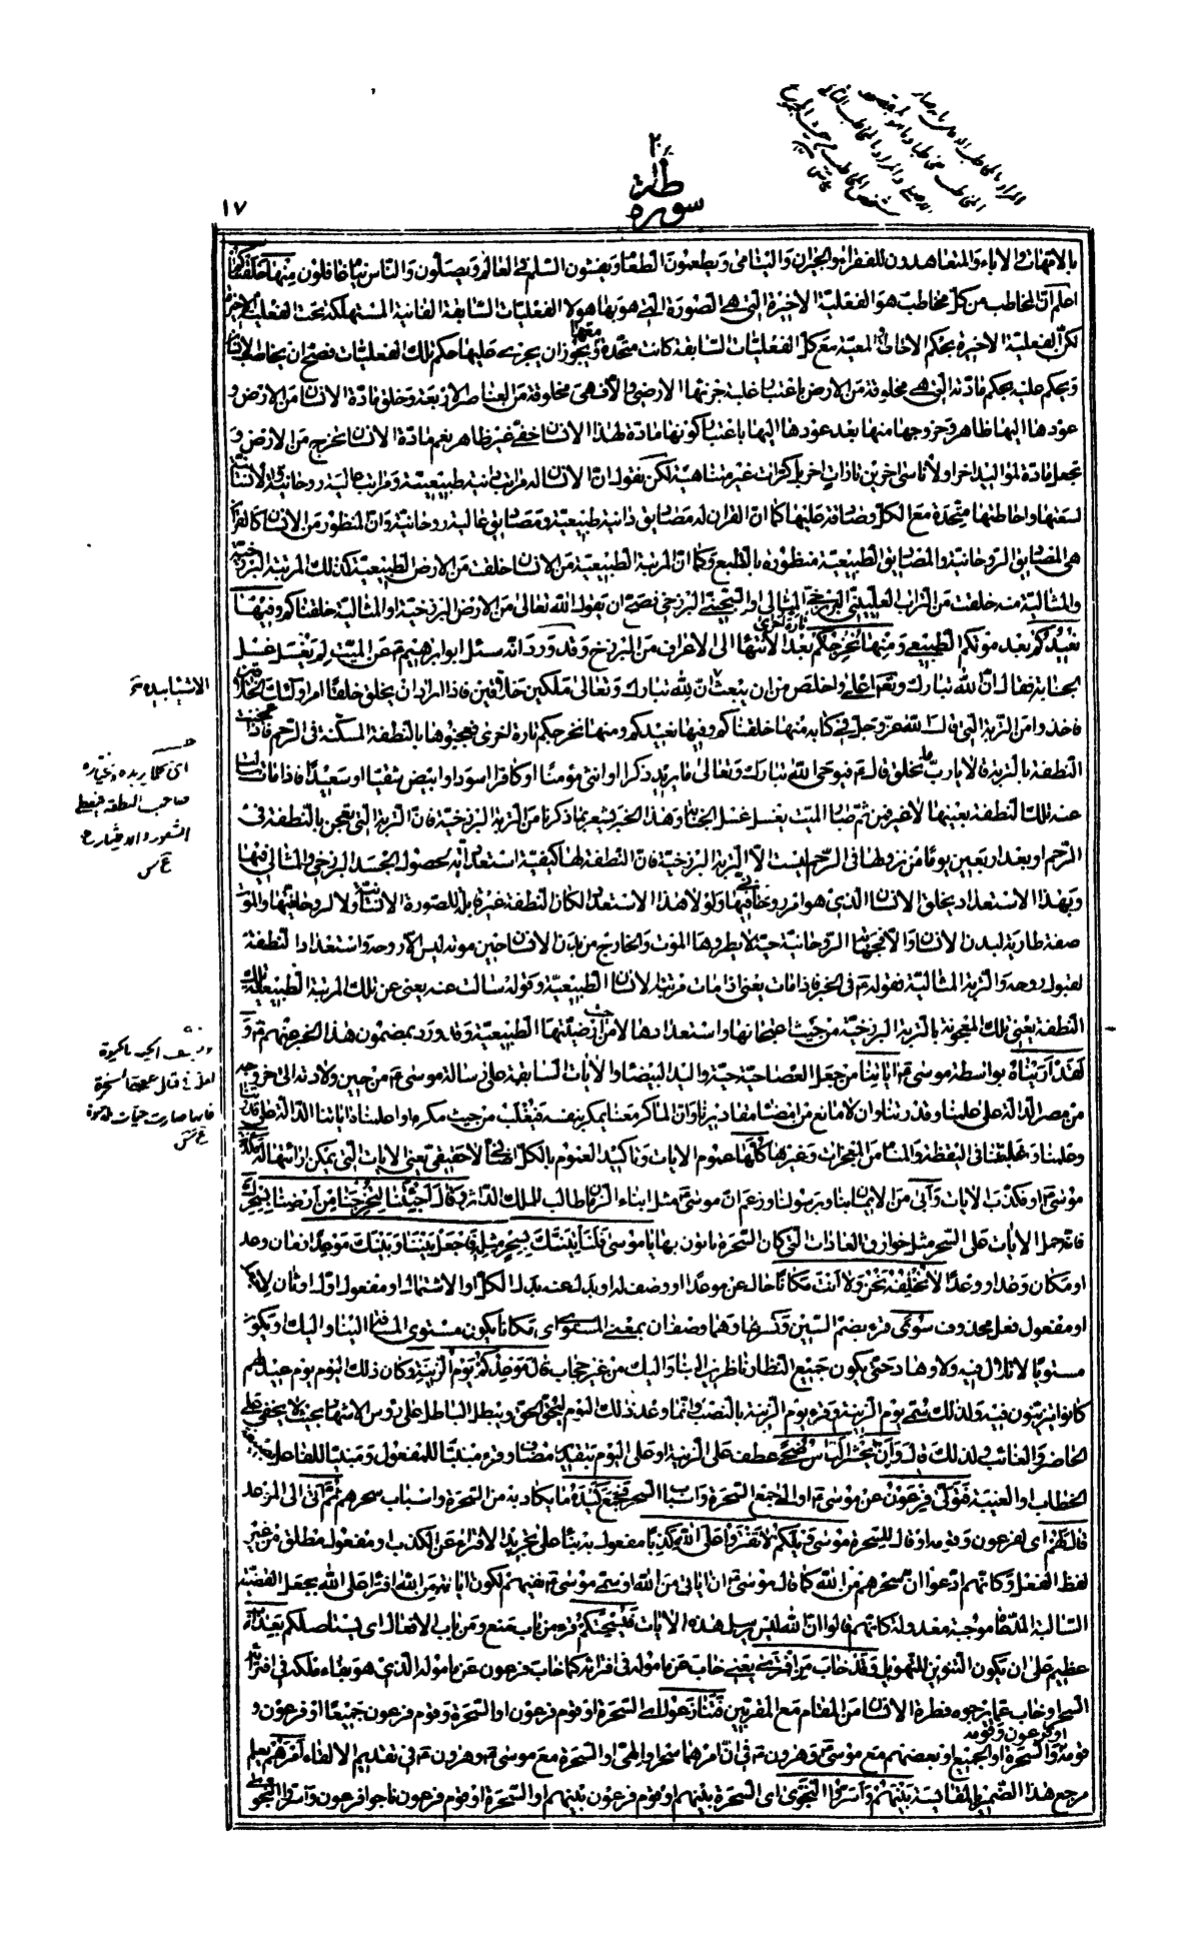 ٢٠
سورة طه
١٧
بالامهات والاباء والمتعاهدون للفقراء والجيران واليتامى ويطعمون الطعام ويفشون السلام فى العالم ويصلون والناس نيام غافلون منها خلقناكم
اعلم ان المخاطب من كل مخاطب هو الفعلية الاخيرة التى هى الصورة التى هو بها هو لا الفعليات السابقة الفانية المستهلكة تحت الفعلية الاخيرة
لكن الفعلية الاخيرة بحكم الاتحاد المعية مع كل الفعليات السابقة كانت متحدة معها ويجوز ان يجرى عليها حكم تلك الفعليات فصح ان يخاطب الانسان
ويحكم عليه بحكم مادته التى هى مخلوقة من الارض باعتبار غلبة جزئها الارضى والا فهى مخلوقة من العناصر الاربعة وخلق مادة الانسان من الارض و
عودها اليها ظاهر وخروجها منها بعد عودها اليها باعتبار كونها مادة لهذا الانسان خفى غير ظاهر نعم مادة الانسان تخرج من الارض و
تجعل مادة لمواليد اخر ولأناسى اخرين تارات اخر بل كرات غير متناهية لكن نقول ان الانسان له مراتب دانية طبيعية ومراتب عالية روحانية والانسانية
لسعتها واحاطتها متحدة مع الكل وصادقة عليها كما ان القران له مصاديق دانية طبيعية ومصاديق عالية روحانية وان المنظور من الانسان كالقران
هى المصاديق الروحانية والمصاديق الطبيعية منظورة بالتبع وكما ان المرتبة الطبيعية من الانسان خلقت من الارض الطبيعية كذلك المرتبة البرزخية
والمثالية منه خلقت من التراب العليينى البرزخى المثالى او السجينى البرزخى فصح ان يقول الله تعالى من الارض البرزخية او المثالية خلقناكم وفيها
نعيدكم بعد موتكم الطبيعى ومنها نخرجكم تارة اخرى بعد الانتهاء الى الاعراف من البرزخ وقد ورد انه سئل ابو ابراهيم ع عن الميت لم يغسل غسل
الجنابة فقال ان الله تبارك وتعالى اعلى واخلص من ان يبعث ان لله تبارك وتعالى ملكين خلاقين فاذا اراد ان يخلق خلقا امر اولئك الخلاقين
فاخذوا من التربة التى قال الله عز وجل فى كتابه منها خلقناكم وفيها نعيدكم ومنها نخرجكم تارة اخرى فعجنوها بالنطفة المسكنة فى الرحم فاذا عجنت
النطفة بالتربة قالا يا رب ما نخلق قال ع فيوحى الله تبارك وتعالى ما يريد ذكرا او انثى مؤمنا او كافرا اسود او ابيض شقيا او سعيدا فاذا مات سالت
عنه تلك النطفة بعينها لا غير فمن ثم صار الميت يغسل غسل الجنابة وهذا الخبر يشعر بما ذكرنا من التربة البرزخية فان التربة التى تعجن بالنطفة فى
الرحم او بعد اربعين يوما من نزولها فى الرحم ليست الا التربة البرزخية فان النطفة لها كيفية استعدادية لحصول الجسد البرزخى والمثالى فيها
وبهذا الاستعداد يخلق الانسان الذى هو امر روحانى فيها ولولا هذا الاستعداد لكان النطفة غير قابلة للصورة الانسانية ولا لروحانيتها والموت
صفة طارية لبدن الانسان والا فجهته الروحانية حية لا يطروها الموت والخارج من بدن الانسان حين موته ليس الا روحه واستعداد النطفة
لقبول روحه والتربة المثالية فقوله ع فى الخبر فاذا مات يعنى اذا مات مرتبة الانسان الطبيعية وقوله سالت عنه يعنى عن تلك المرتبة الطبيعية تلك
النطفة يعنى تلك المعجونة بالتربة البرزخية من حيث اعتجانها واستعدادها لا من حيث ارضيتها الطبيعية وقد ورد بمضمون هذا الخبر عنهم ع و
لقد اريناه بواسطة موسى ع اياتنا من جعل العصا حية واليد البيضاء والايات السابقة على رسالة موسى ع من حين ولادته الى خروجه
من مصر الدالة على علمنا وقدرتنا وان لا مانع من امضاء مقاديرنا وان الماكر معنا يمكر بنفسه
موسى ع او فكذب الايات وابى من الايمان بنا وبرسولنا وزعم ان موسى ع مثل ابناء الزمان طالب للملك الداثر وقال اجئتنا لتخرجنا من ارضنا بسحرك
فانه حمل الايات على السحر مثل خوارق العادات التى كان السحرة ياتون بها يا موسى فلنأتينك بسحر مثله فاجعل بيننا وبينك موعدا زمان وعد
او مكان وعد او وعدا لا نخلفه نحن ولا انت مكانا حال عن موعدا او وصف له او بدل عنه بدل الكل او الاشتمال او مفعول اول او ثان لاجعل
او مفعول فعل محذوف سوى قرء بضم السين وكسرها وهما وصفان بمعنى المستوى اى مكانا يكون مستوى المسافة الينا واليك او يكون
مستويا لا تلال فيه ولا وهاد حتى يكون جميع النظار ناظرين الينا واليك من غير حجاب قال موعدكم يوم الزينة وكان ذلك اليوم يوم عيد لهم
كانوا يتزينون فيه ولذلك سمى يوم الزينة وقرء يوم الزينة بالنصب وانما وعد ذلك اليوم ليحق الحق ويبطل الباطل على رؤس الاشهاد بحيث لا يخفى على
الحاضر والغائب ولذلك قال وان يحشر الناس ضحى عطف على الزينة او على اليوم بتقدير مضاف وقرء مبنيا للمفعول ومبنيا للفاعل
الخطاب او الغيبة فتولى فرعون عن موسى ع او الى جمع السحرة واسباب السحر فجمع كيده ما يكاد به من السحرة واسباب سحرهم ثم اتى الى الموعد
قال لهم اى لفرعون وقومه او قال للسحرة موسى ويلكم لا تفتروا على الله كذبا مفعول به بناء على تجريد الافتراء عن الكذب او مفعول مطلق من غير
لفظ الفعل وكانهم ادعوا ان سحرهم من الله كما قال موسى ع ان اياتى من الله او سمى موسى ع نفيهم لكون اياته من الله افتراء على الله بجعل القضية
السالبة المدعاة موجبة معدولة كانهم قالوا ان الله ليس يرسل هذه الايات فيسحتكم قرء من باب منع ومن باب الافعال اى يستاصلكم بعذاب
عظيم على ان يكون التنوين للتهويل وقد خاب من افترى يعنى خاب عن ماموله فى افترائه كما خاب فرعون عن ماموله الذى هو بقاء ملكه فى افترائه
السحر او خاب عما يرجوه فطرة الانسان من المقام مع المقربين فتنازعوا اى السحرة او قوم فرعون او السحرة وقوم فرعون جميعا او فرعون و
او فرعون وقومه
قومه والسحرة او الجميع او بعضهم مع موسى ع وهرون ع فى ان امرهما سحر او الهى او السحرة مع موسى ع وهرون ع فى تقديم الالقاء امرهم يعلم
مرجع هذا الضمير بالمقايسة بينهم واسروا النجوى اى السحرة بينهم او قوم فرعون بينهم او السحرة او قوم فرعون ناجوا فرعون واسروا النجوى